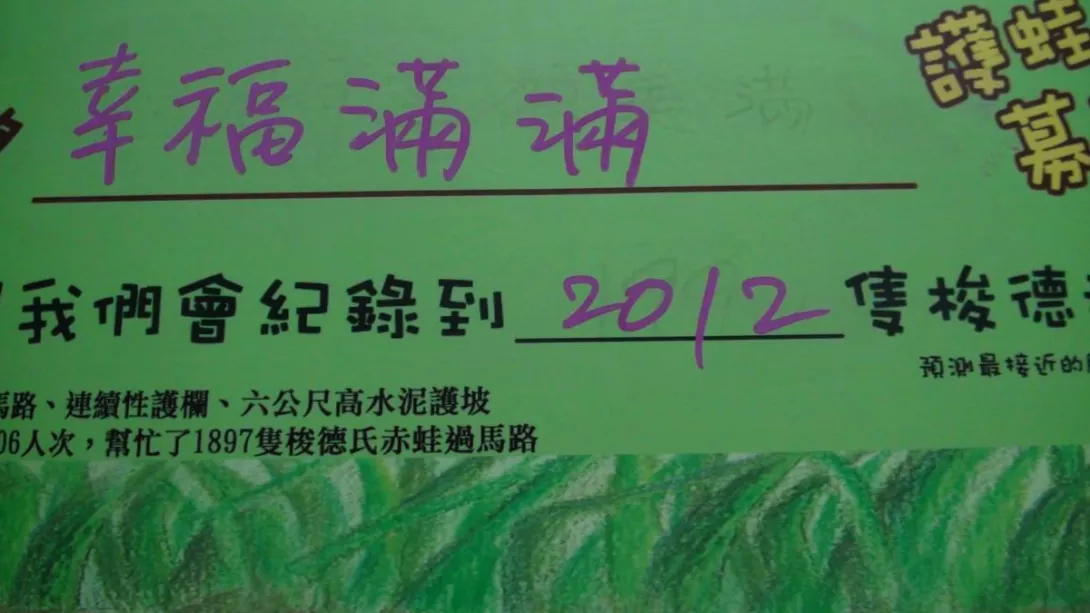 幸福滿滿
護蛙
幕
我們會紀錄到 2012 隻梭德
預測最接近的
馬路、連續性護欄、六公尺高水泥護坡
06人次，幫忙了1897隻梭德氏赤蛙過馬路